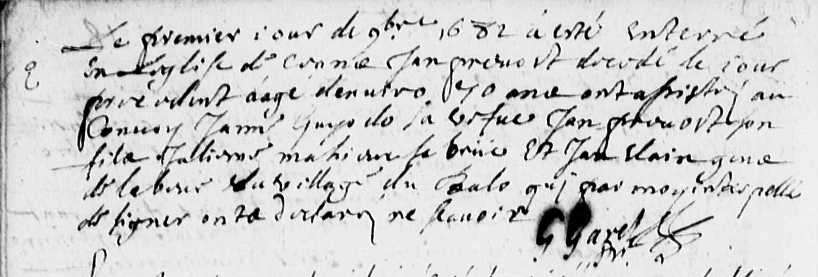 Le premier iour de 9bre 1682 a esté enterré
en leglise de Jan prevost decedé le iour
precedent aagé denviro 70 ans ont assisté au
convoy Janne Guyodo sa vefve Jan prevost son
fils Julienne mahieux sa bruë et Jan gens
de labeur du village du qui par moy interpelle
de signer ont declaré ne scavoir
G Garel